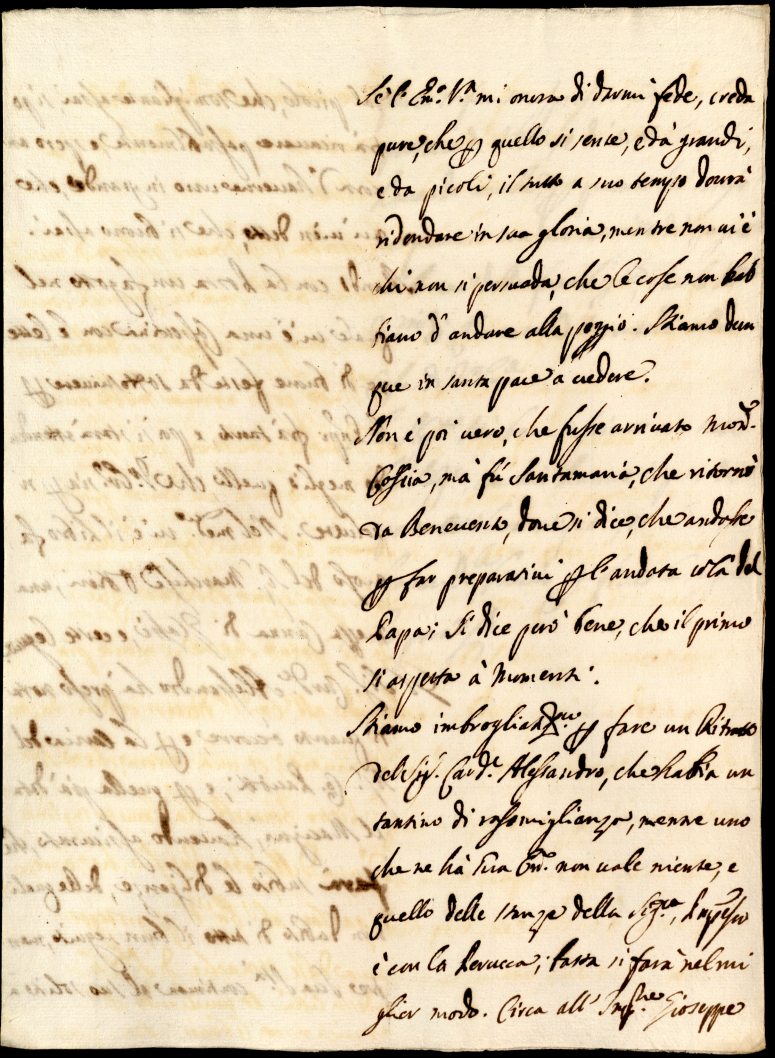 Se l'Em.ª V.ª mi onora di darmi fede, creda
pure, che p quello si sente, e dà grandi,
e da picoli, il tutto a suo tempo dourà
ridondare in sua gloria, mentre non ui è
chi non si persuada, che le cose non hab
biano d'andare alla peggio. Stiamo dun
que in santa pace a uedere.
Non è poi uero, che fusse arriuato Mons.r
Coscia, mà fù Santamaria, che ritornò
da Beneuento, doue si dice, che andasse
p far preparatiui p l'andata colà del
Papa; si dice però bene, che il primo
si aspetta à momenti.
Stiamo imbrogliatiss.mi p fare un Ritratto
del Sig.r Card.e Alessandro, che habia un
tantino di rassomiglianza, mentre uno
che ne hà Sua Em.ª non uale niente, e
quello delle stanze della Sig.ra
è con la Perucca; basta si farà nel mi
glior modo. Circa all' Giuseppe